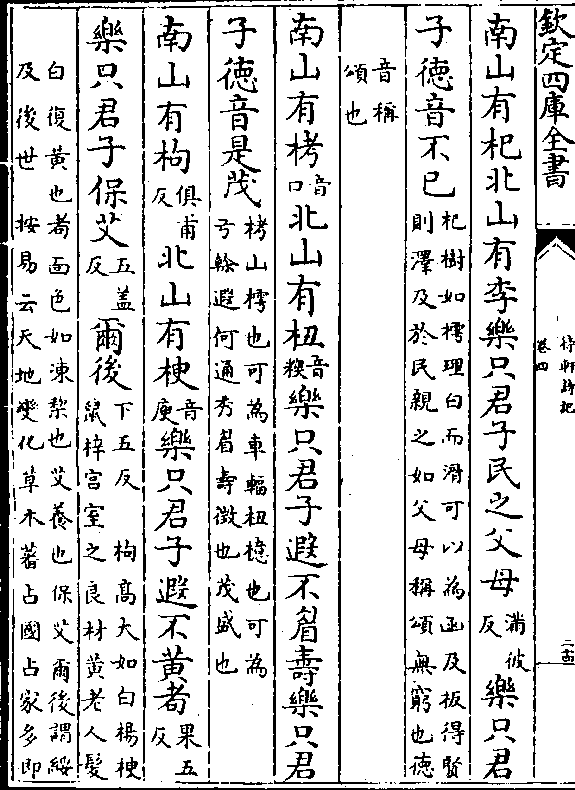 欽定四庫全書
待軒詩記
卷四
南山有杞北山有李樂只君子民之父母滿彼反樂只君
子德音不已杞樹如樗理白而滑可以為函及板得賢
則澤及於民親之如父母稱頌無窮也德
音稱
頌也
南山有栲音口北山有杻音糗樂只君子遐不眉壽樂只君
子德音是茂栲山樗也可為車輻杻檍也可為
弓榦遐何通秀眉壽徵也茂盛也
南山有枸俱甫反北山有楰音庾樂只君子遐不黃耇果五反
樂只君子保艾五蓋反爾後下五反 枸高大如白楊楰
鼠梓宮室之良材黃老人髮
白復黃也耇面色如凍黎也艾養也保艾爾後謂綏
及後世 按易云天地變化草木蕃占國占家多即